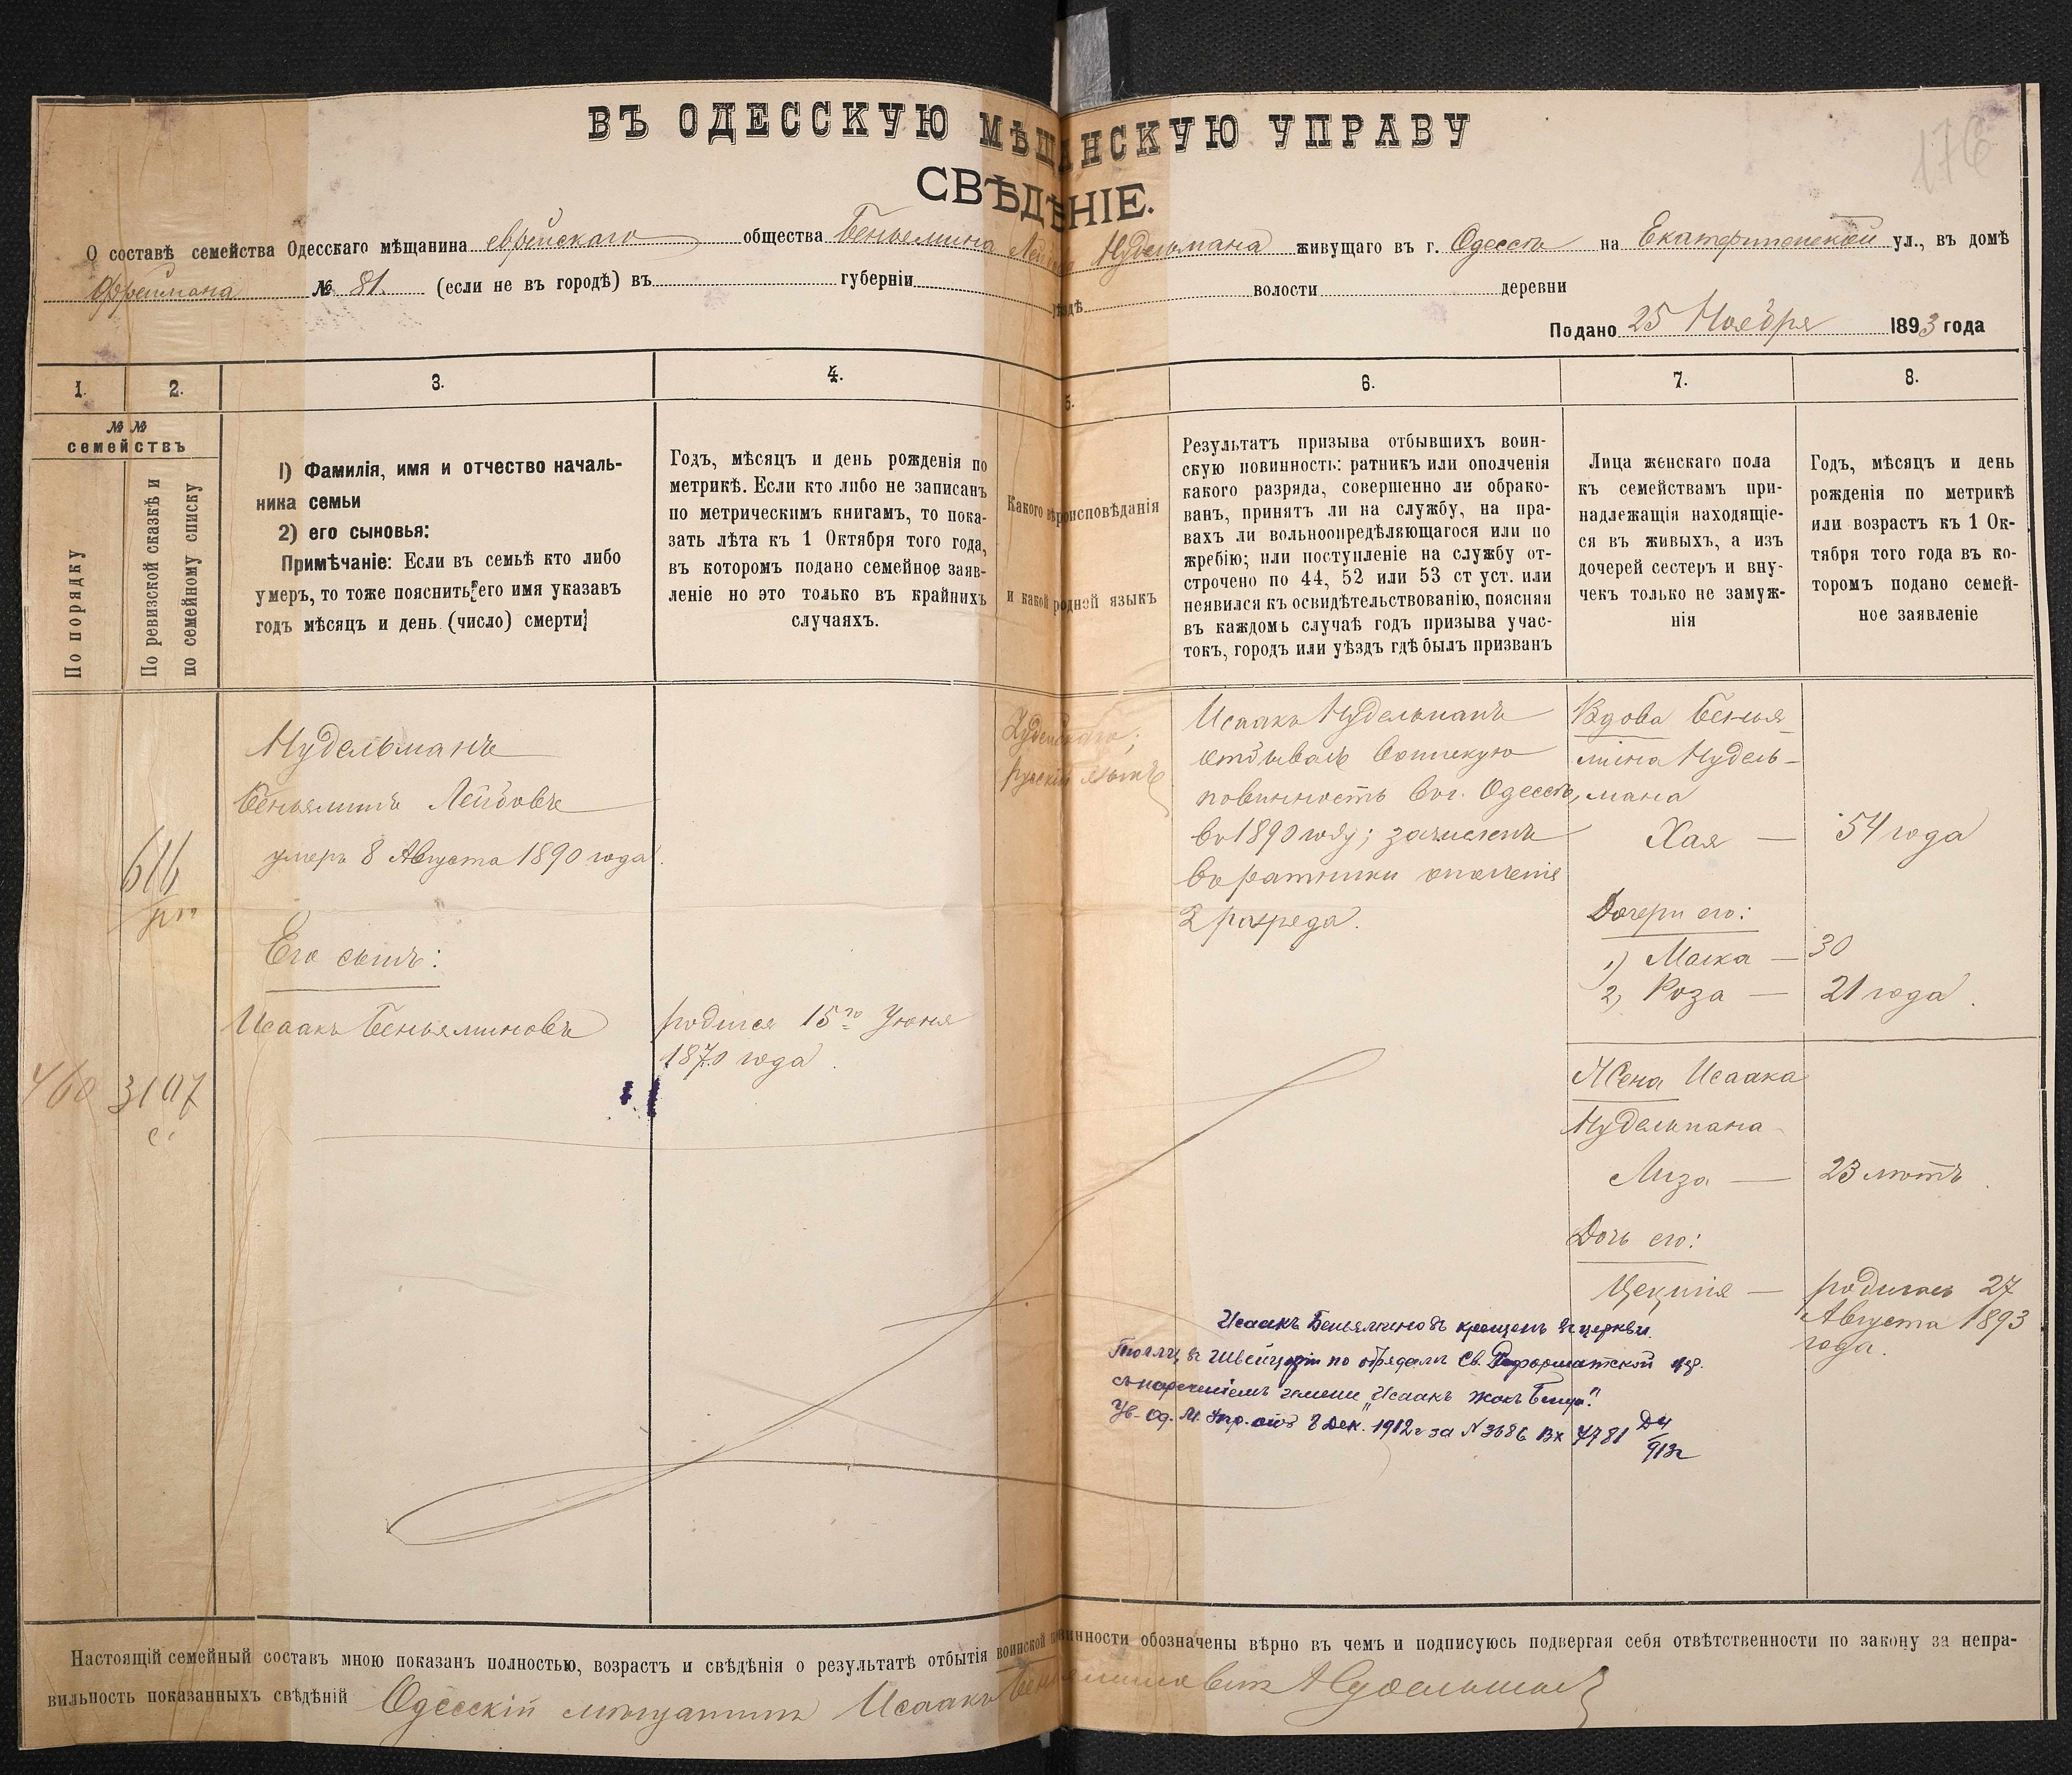 ВЪ ОДЕССКУЮ МѢЩАНСКУЮ УПРАВУ
СВѢДѢНІЕ.
О составѣ семейства Одесскаго мѣщанина еврейскаго общества Беньямина Лейбова Нудельмана живущаго въ г. Одессѣ на Екатерининской ул., въ домѣ
№ 81. (если не въ городѣ) въ губерніи уѣздѣ волости деревни
Подано 25 Ноября 1893 года
1.
2.
3.
4.
5.
6.
7.
8.
№ №
семействъ
По порядку
По ревизской сказкѣ и
по семейному списку
1) Фамилія, имя и отчество началь-
ника семьи
2) его сыновья:
Примѣчаніе: Если въ семьѣ кто либо
умеръ, то тоже пояснить его имя указавъ
годъ мѣсяцъ и день (число) смерти
Годъ, мѣсяцъ и день рожденія по
метрикѣ. Если кто либо не записанъ
по метрическимъ книгамъ, то пока-
зать лѣта къ 1 Октября того года,
въ которомъ подано семейное заяв-
леніе но это только въ крайнихъ
случаяхъ.
Какого вѣроисповѣданія
и какой родной языкъ
Результатъ призыва отбывшихъ воин-
скую повинность: ратникъ или ополченія
какого разряда, совершенно ли обрако-
ванъ, принятъ ли на службу, на пра-
вахъ ли вольноопредѣляющагося или по
жребію; или поступленіе на службу от-
строчено по 44, 52 или 53 ст уст. или
неявился къ освидѣтельствованію, поясняя
въ каждомъ случаѣ годъ призыва учас-
токъ, городъ или уѣздъ гдѣ былъ призванъ
Лица женскаго пола
къ семействамъ при-
надлежащія находящіе-
ся въ живыхъ, а изъ
дочерей сестеръ и вну-
чекъ только не замуж-
нія
Годъ, мѣсяцъ и день
рожденія по метрикѣ
или возрастъ къ 1 Ок-
тября того года въ ко-
торомъ подано семей-
ное заявленіе
616
Нудельманъ
Беньяминъ Лейбовъ
умеръ 8 Августа 1890 года.
Его сынъ:
460 3107
Исаакъ Беньяминовъ
родился 15го Іюня
1870 года.
Іудейскаго;
русскій языкъ
Исаакъ Нудельманъ
отбывалъ воинскую
повинность въ г. Одессѣ,
въ 1890 году; зачисленъ
въ ратники ополченія
2 разряда.
Вдова Бенья
мина Нудель-
мана
Хая — 54 года
Дочери его:
1) Малка — 30
2) Роза — 21 года.
Жена Исаака
Нудельмана
Лиза — 23 лѣтъ.
Дочь его:
Цецилія — родилась 27
Августа 1893
года.
Исаакъ Беньяминовъ крещенъ въ церкви
въ Швейцаріи по обрядамъ Св. Реформатской цер.
съ нареченіемъ имени „Исаакъ Жакъ
Ув. Од. М. Упр. отъ 8 Дек. 1912 г за № 3686 Вх 4781
913г
Настоящій семейный составъ мною показанъ полностью, возрастъ и свѣдѣнія о результатѣ отбытія воинской повинности обозначены вѣрно въ чемъ и подписуюсь подвергая себя отвѣтственности по закону за непра-
вильность показанныхъ свѣдѣній Одесскій мѣщанинъ Исаакъ Беньяминовичъ Нудельманъ